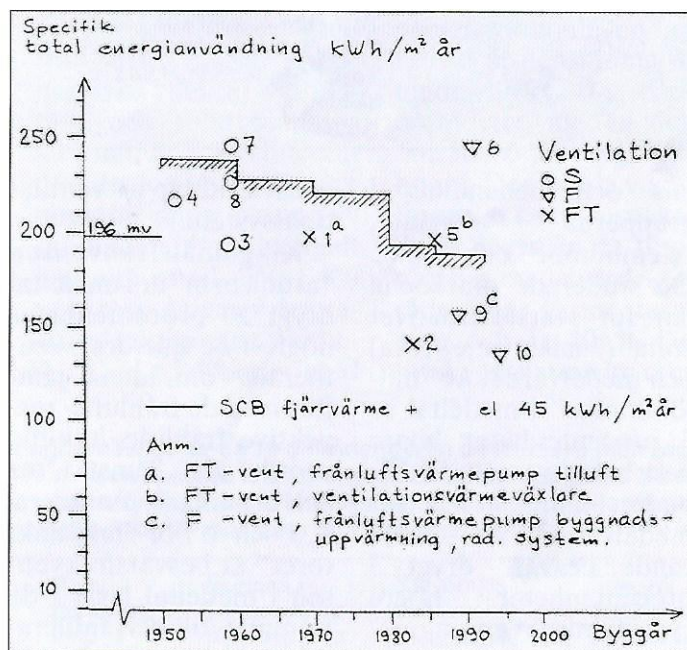 Specifik
total energianvändning kWh/m² år
250
200
150
100
50
10
196 mv
7
4
8
3
1ᵃ
5ᵇ
6
9ᶜ
2
10
Ventilation
S
F
FT
SCB fjärrvärme + el 45 kWh/m²år
Anm.
a. FT-vent, frånluftsvärmepump tilluft
b. FT-vent, ventilationsvärmeväxlare
c. F -vent, frånluftsvärmepump byggnads-
uppvärmning, rad. system.
1950 1960 1970 1980 1990 2000 Byggår